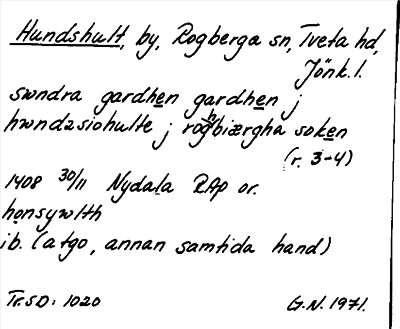 Hundshult, by, Rogberga sn, Tveta hd,
Jönk. l.
swndra gardhen gardhen j
hwndzsiohulte j roghbiærgha soken
(r. 3-4)
1408 30/11 Nydala RAp or.
honsywlth
ib. (atgo, annan samtida hand)
Tr. SD: 1020
G.N. 1971.